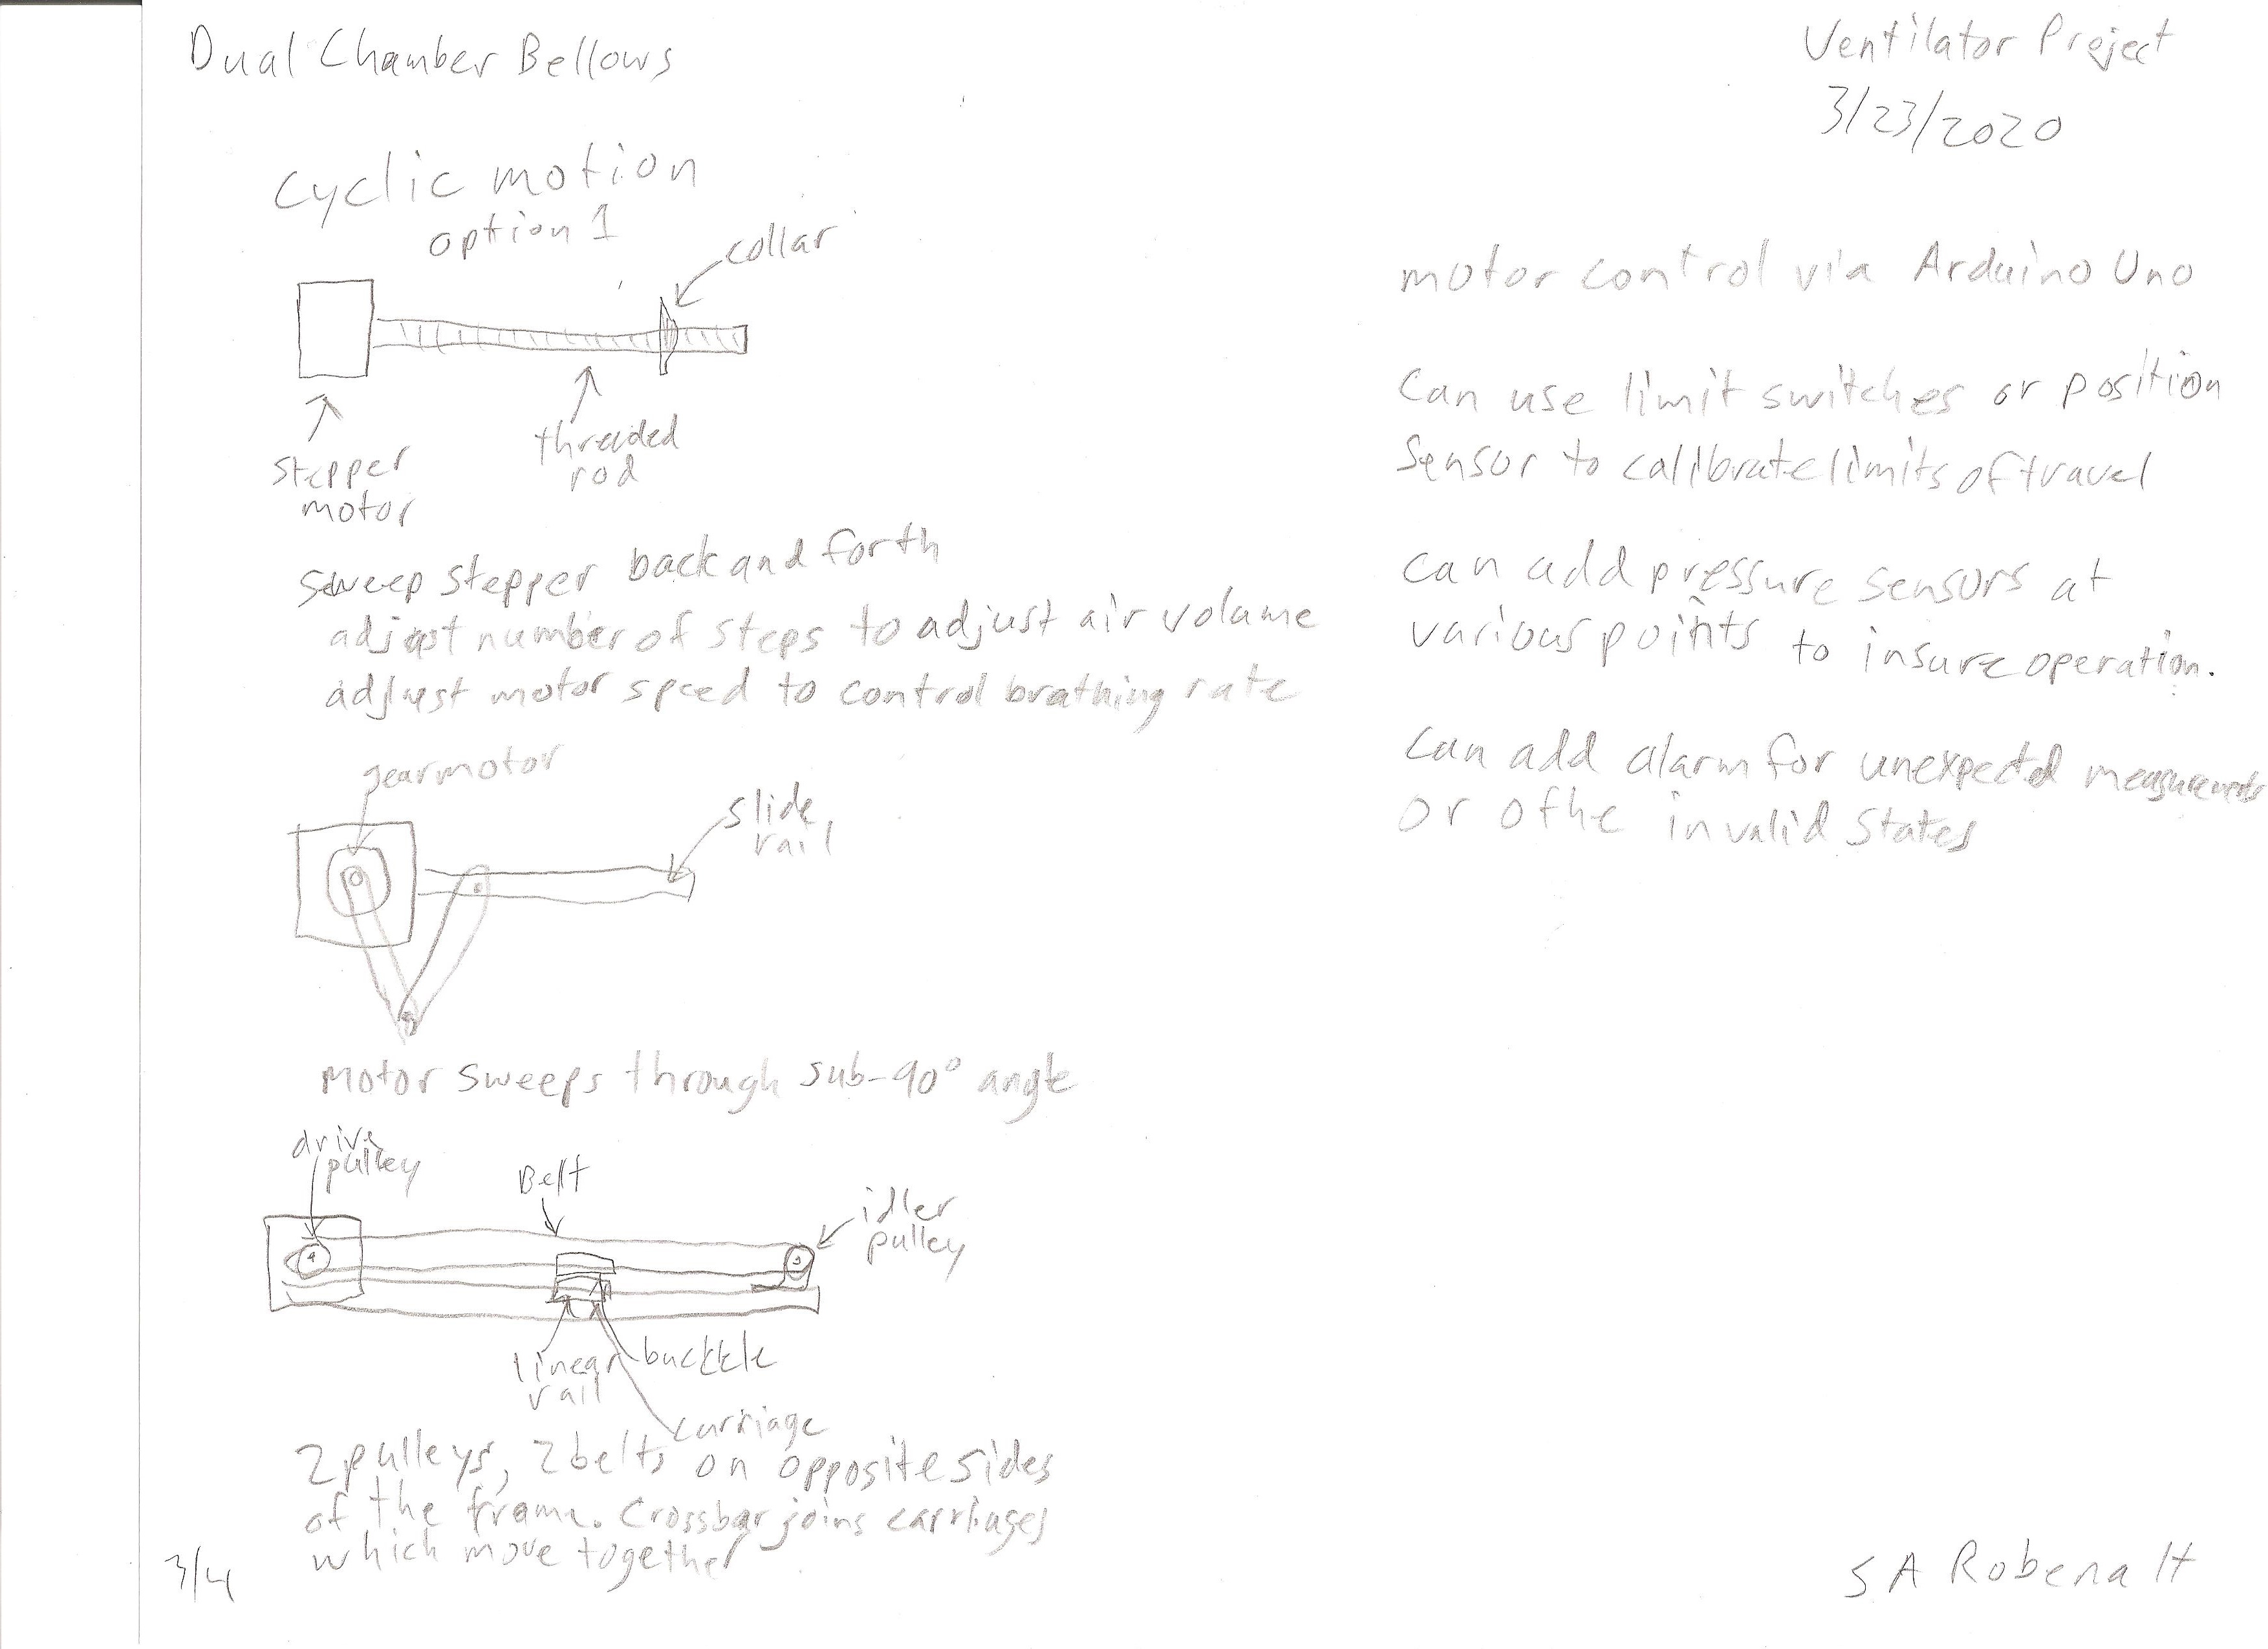 Dual Chamber Bellows
Ventilator Project
3/23/2020
Cyclic motion
option 1
collar
stepper
motor
threaded
rod
sweep stepper back and forth
adjust number of steps to adjust air volume
adjust motor speed to control brathing rate
gearmotor
slide
rail
Motor sweeps through sub-90° angle
drive
pulley
Belt
idler
pulley
linear
rail
bucktle
carriage
2 pulleys, 2 belts on opposite sides
of the frame. Crossbar joins carriages
which move together
3/4
motor control via Arduino Uno
Can use limit switches or position
Sensor to calibrate limits of travel
can add pressure sensors at
various points to insure operation.
Can add alarm for unexpected measurements
Or othe invalid States
S A Robenalt